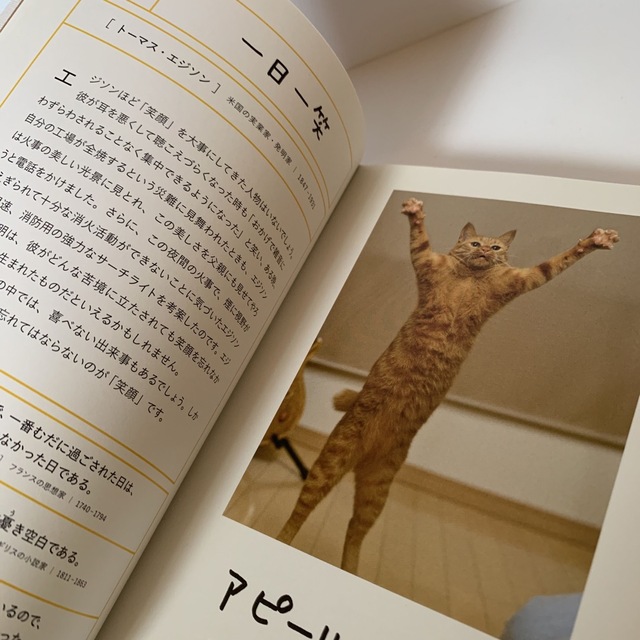 一日一笑
[トーマス・エジソン]
米国の実業家・発明家 | 1847-1931
エジソンほど「笑顔」を大事にしてきた人物はいないでしょう。
彼が耳を悪くして聴こえづらくなった時も「おかげで雑音に
わずらわされることなく集中できるようになった」と笑い、ある夜、
自分の工場が全焼するという災難に見舞われたときも、エジソン
は火事の美しい光景に見とれ、この美しさを父親にも見せてやろ
うと電話をかけました。さらに、この夜間の火事で、煙に視界が
えぎられて十分な消火活動ができないことに気づいたエジソン
速、消防用の強力なサーチライトを考案したのです。エジ
明は、彼がどんな苦境に立たされても笑顔を忘れなか
生まれたものだといえるかもしれません。
の中では、喜べない出来事もあるでしょう。しか
忘れてはならないのが「笑顔」です。
、一番むだに過ごされた日は、
なかった日である。
] フランスの思想家 | 1740-1794
書き空白である。
ギリスの小説家 | 1811-1863
いるので、
アピール